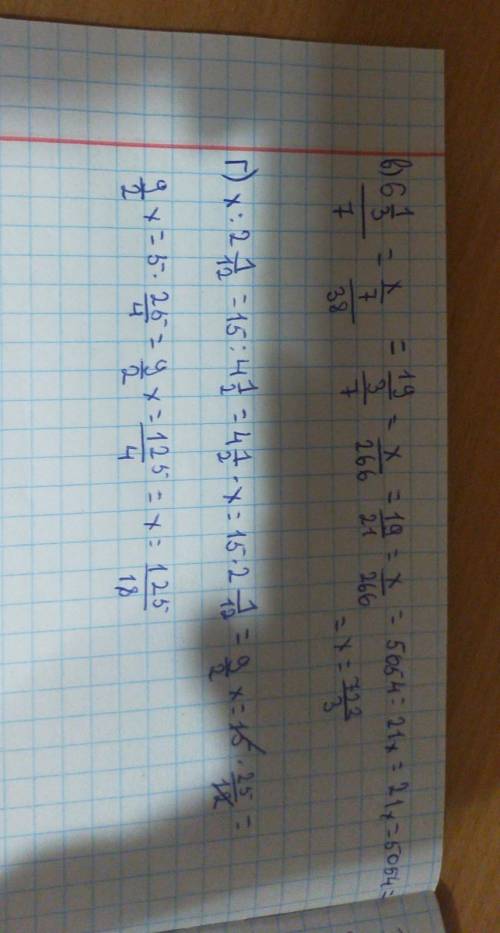 в) 6 1/3 / 7 = x / 7/38 = 19/3 / 7 = x/266 = 19/21 = x/266 = 5054 = 21x = 21x = 5054 =
= x = 722/3
г) x : 2 1/12 = 15 : 4 1/2 = 4 1/2 · x = 15 · 2 1/12 = 9/2 x = 15 · 25/12 =
9/2 x = 5 · 25/4 = 9/2 x = 125/4 = x = 125/18